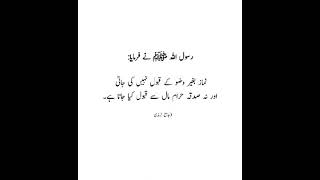 رسول اللہ ﷺ نے فرمایا:
نماز بغیر وضو کے قبول نہیں کی جاتی
اور نہ صدقہ حرام مال سے قبول کیا جاتا ہے۔
(جامع ترمذی)